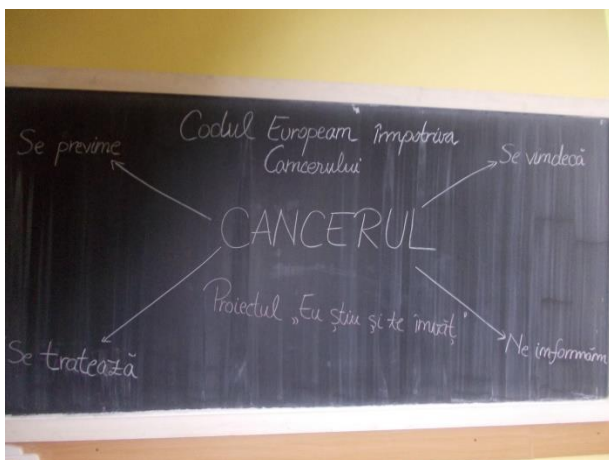 Codul European împotriva
Cancerului
Se previne
Se vindecă
CANCERUL
Proiectul „Eu știu și te învăț"
Se tratează
Ne informăm